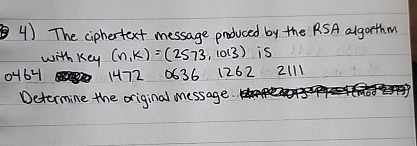 4) The ciphertext message produced by the RSA algorithm
with key (n,k) = (2573, 1013) is
0464 1472 0636 1262 2111
Determine the original message.